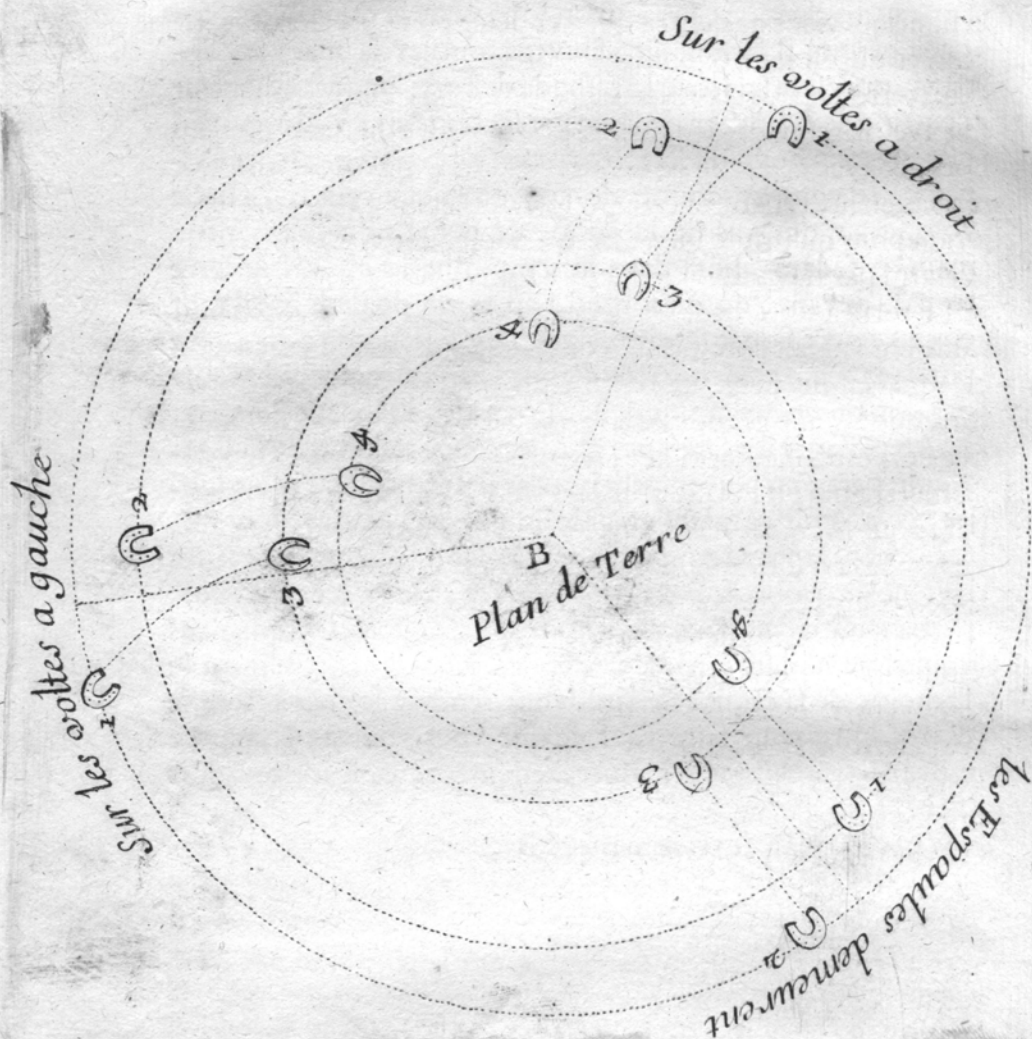 Sur les voltes a droit
2
1
3
4
Sur les voltes a gauche
4
2
3
1
B
Plan de Terre
4
3
1
2
les Espaules demeurent